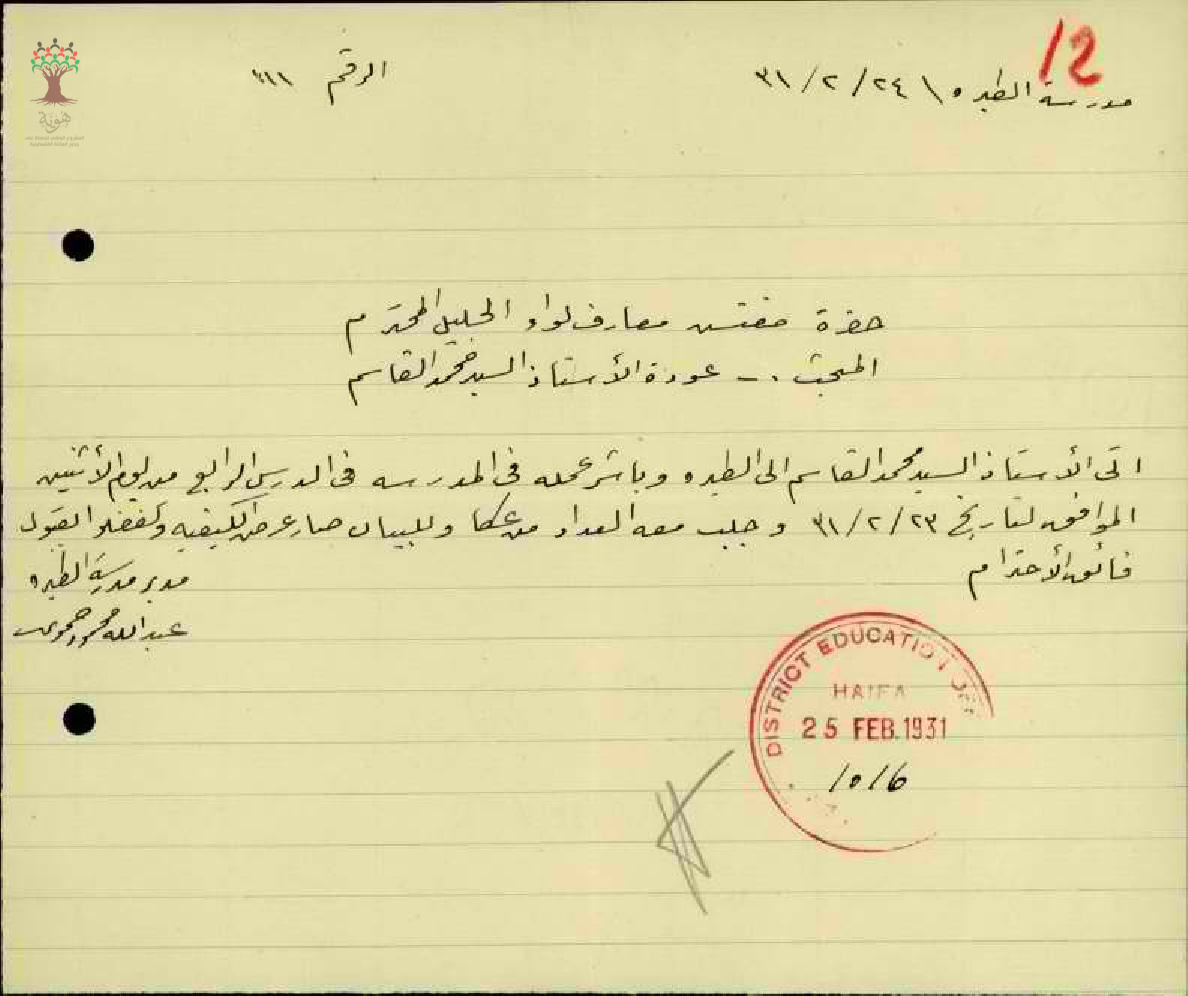 12
مدرسة الطيره \ ٢٤/٢/٣١
الرقم
هوية
حضرة مفتش معارف لواء الجليل المحترم
المبحث .- عودة الأستاذ السيد محمد القاسم
اتى الأستاذ السيد محمد القاسم الى الطيره وباشر عمله في المدرسه في الدرس الرابع من يوم الأثنين
الموافق لتاريخ ٢٣/٢/٣١ وجلب معه من عكا وللبيان صار عرض الكيفيه وتفضلوا بقبول
فائق الأحترام
مدير مدرسة الطيره
عبدالله محمود
DISTRICT EDUCATION OFF
HAIFA
25 FEB. 1931
10/6